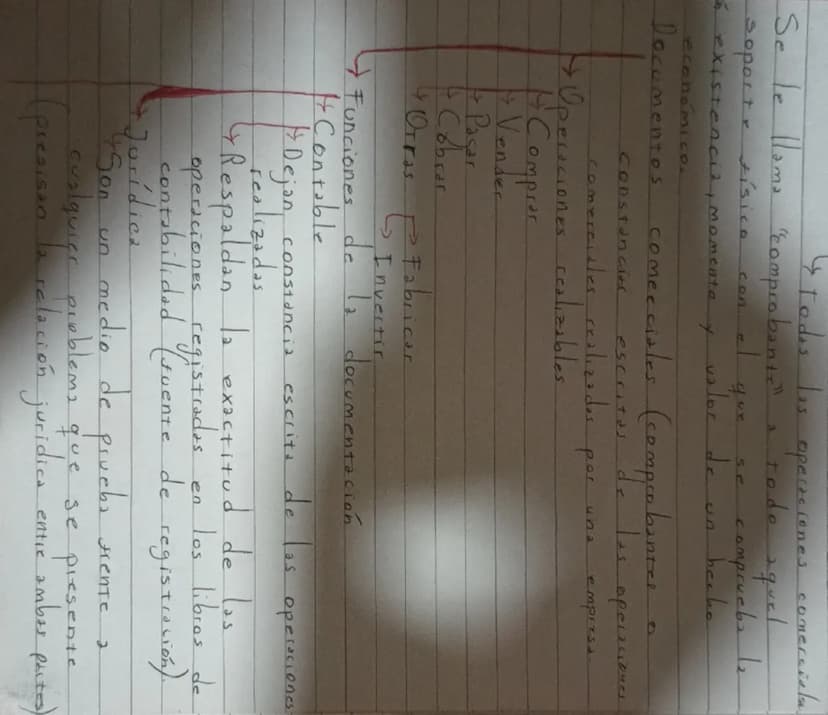 ↳ Todas las operaciones comerciales
Se le llama "comprobante" a todo aquel
soporte físico con el que se comprueba la
existencia, momento y valor de un hecho
económico.
Documentos comerciales (comprobantes o
constancias escritas de las operaciones
comerciales realizadas por una empresa
↳ Operaciones realizables
↳ Comprar
↳ Vender
↳ Pagar
↳ Cobrar
↳ Otras ↱ Fabricar
↳ Invertir
↳ Funciones de la documentación
↳ Contable
↳ Dejan constancia escrita de las operaciones
realizadas
↳ Respaldan la exactitud de las
operaciones registradas en los libros de
contabilidad (fuente de registración).
↳ Jurídica
↳ Son un medio de prueba frente a
cualquier problema que se presente
(presisan la relación jurídica entre ambas partes)